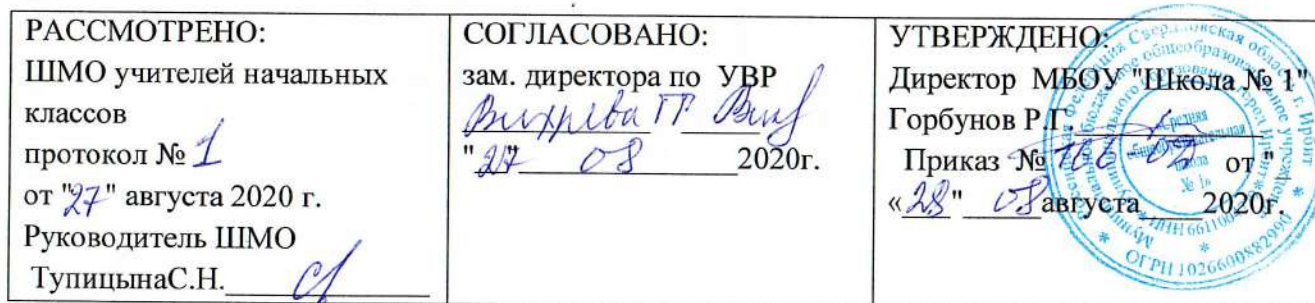 РАССМОТРЕНО:
ШМО учителей начальных
классов
протокол № 1
от "27" августа 2020 г.
Руководитель ШМО
ТупицынаС.Н.
СОГЛАСОВАНО:
зам. директора по УВР
"27" 08 2020г.
УТВЕРЖДЕНО:
Директор МБОУ "Школа № 1"
Горбунов Р.Г.
Приказ № от "
«28" 08 августа 2020г.
Средняя
общеобразовательная
школа
№ 1»
ОГРН 1026600882990